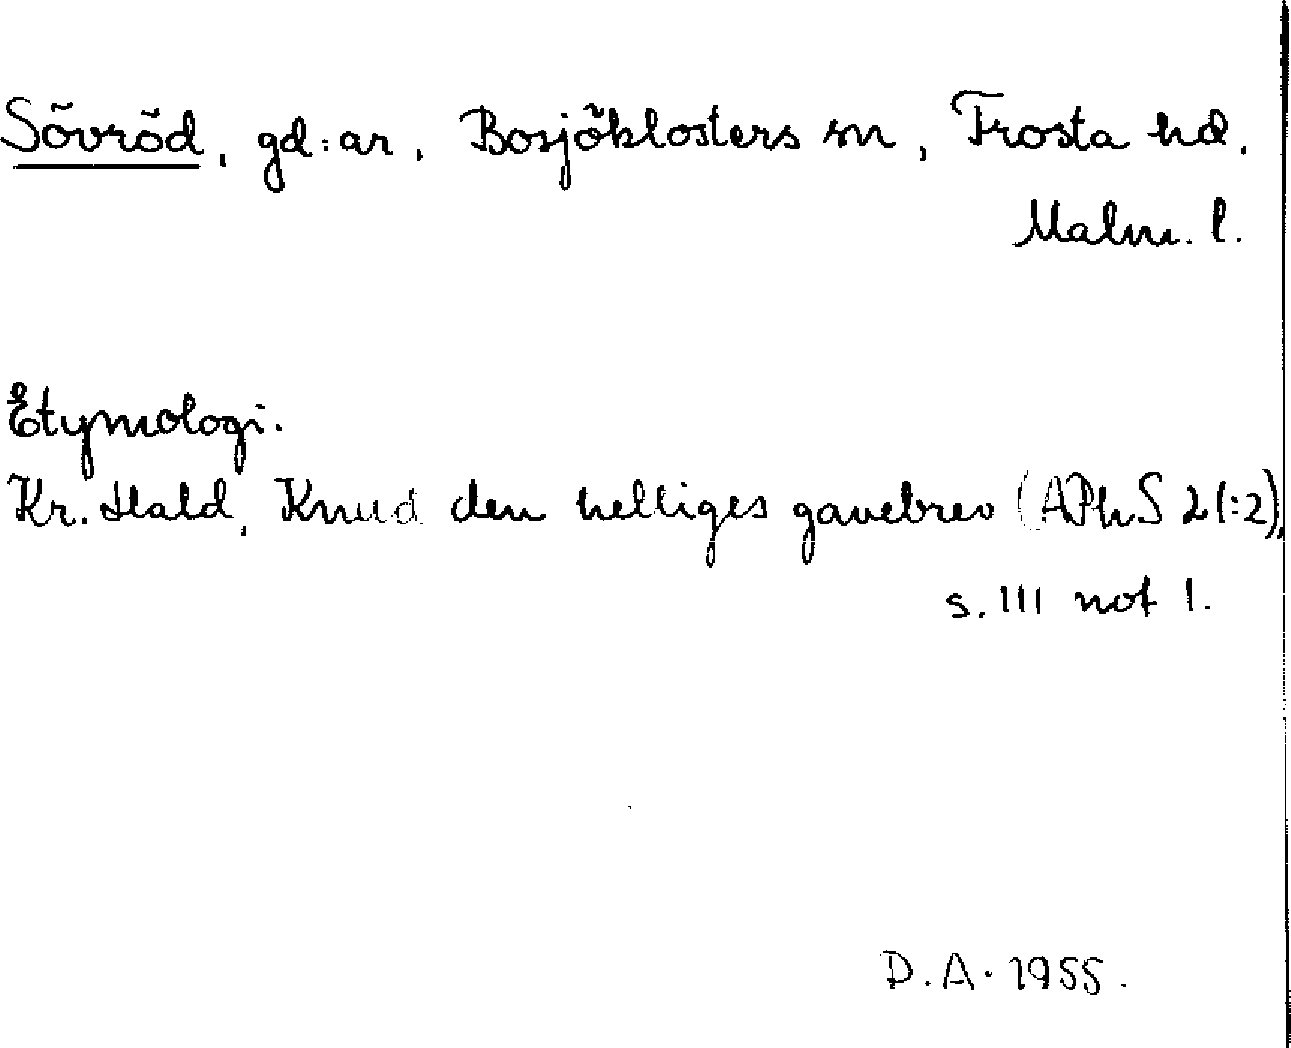 Sövröd, gd:ar, Bosjöklosters sn, Frosta hd.
Malm. l.
Etymologi.
Kr. Hald, Knud den helliges gavebrev (APhS 21:2),
s. 111 not 1.
D.A. 1955.